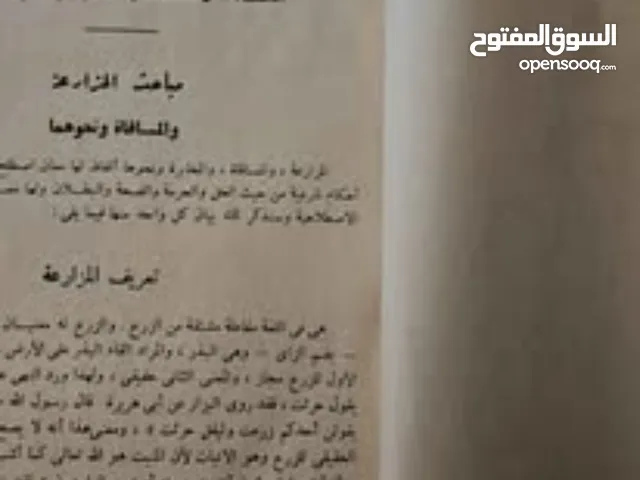 السوق المفتوح
opensooq.com
مباحث المزارعة
والمساقاة ونحوهما
المزارعة ، والمساقاة ، والمخابرة ونحوها ألفاظ لها معان
أحكام شرعية من حيث الحل والحرمة والصحة والبطلان ولها
الاصطلاحية وسنذكر لك بيان كل واحد منها فيما يلي :
تعريف المزارعة
هي في اللغة مفاعلة مشتقة من الزرع . والزرع له معنيان
بضم الزاي - وهي البذر ، والمراد القاء البذر على الأرض
الأول للزرع مجاز ، والمعنى الثاني حقيقي ، ولهذا ورد النهي
يقول حرثت ، فقد روى البزار عن أبي هريرة قال رسول الله
يقولن أحدكم زرعت وليقل حرثت » ، ومعنى هذا أنه لا
الحقيقي للزرع وهو الانبات لأن المنبت هو الله تعالى كما